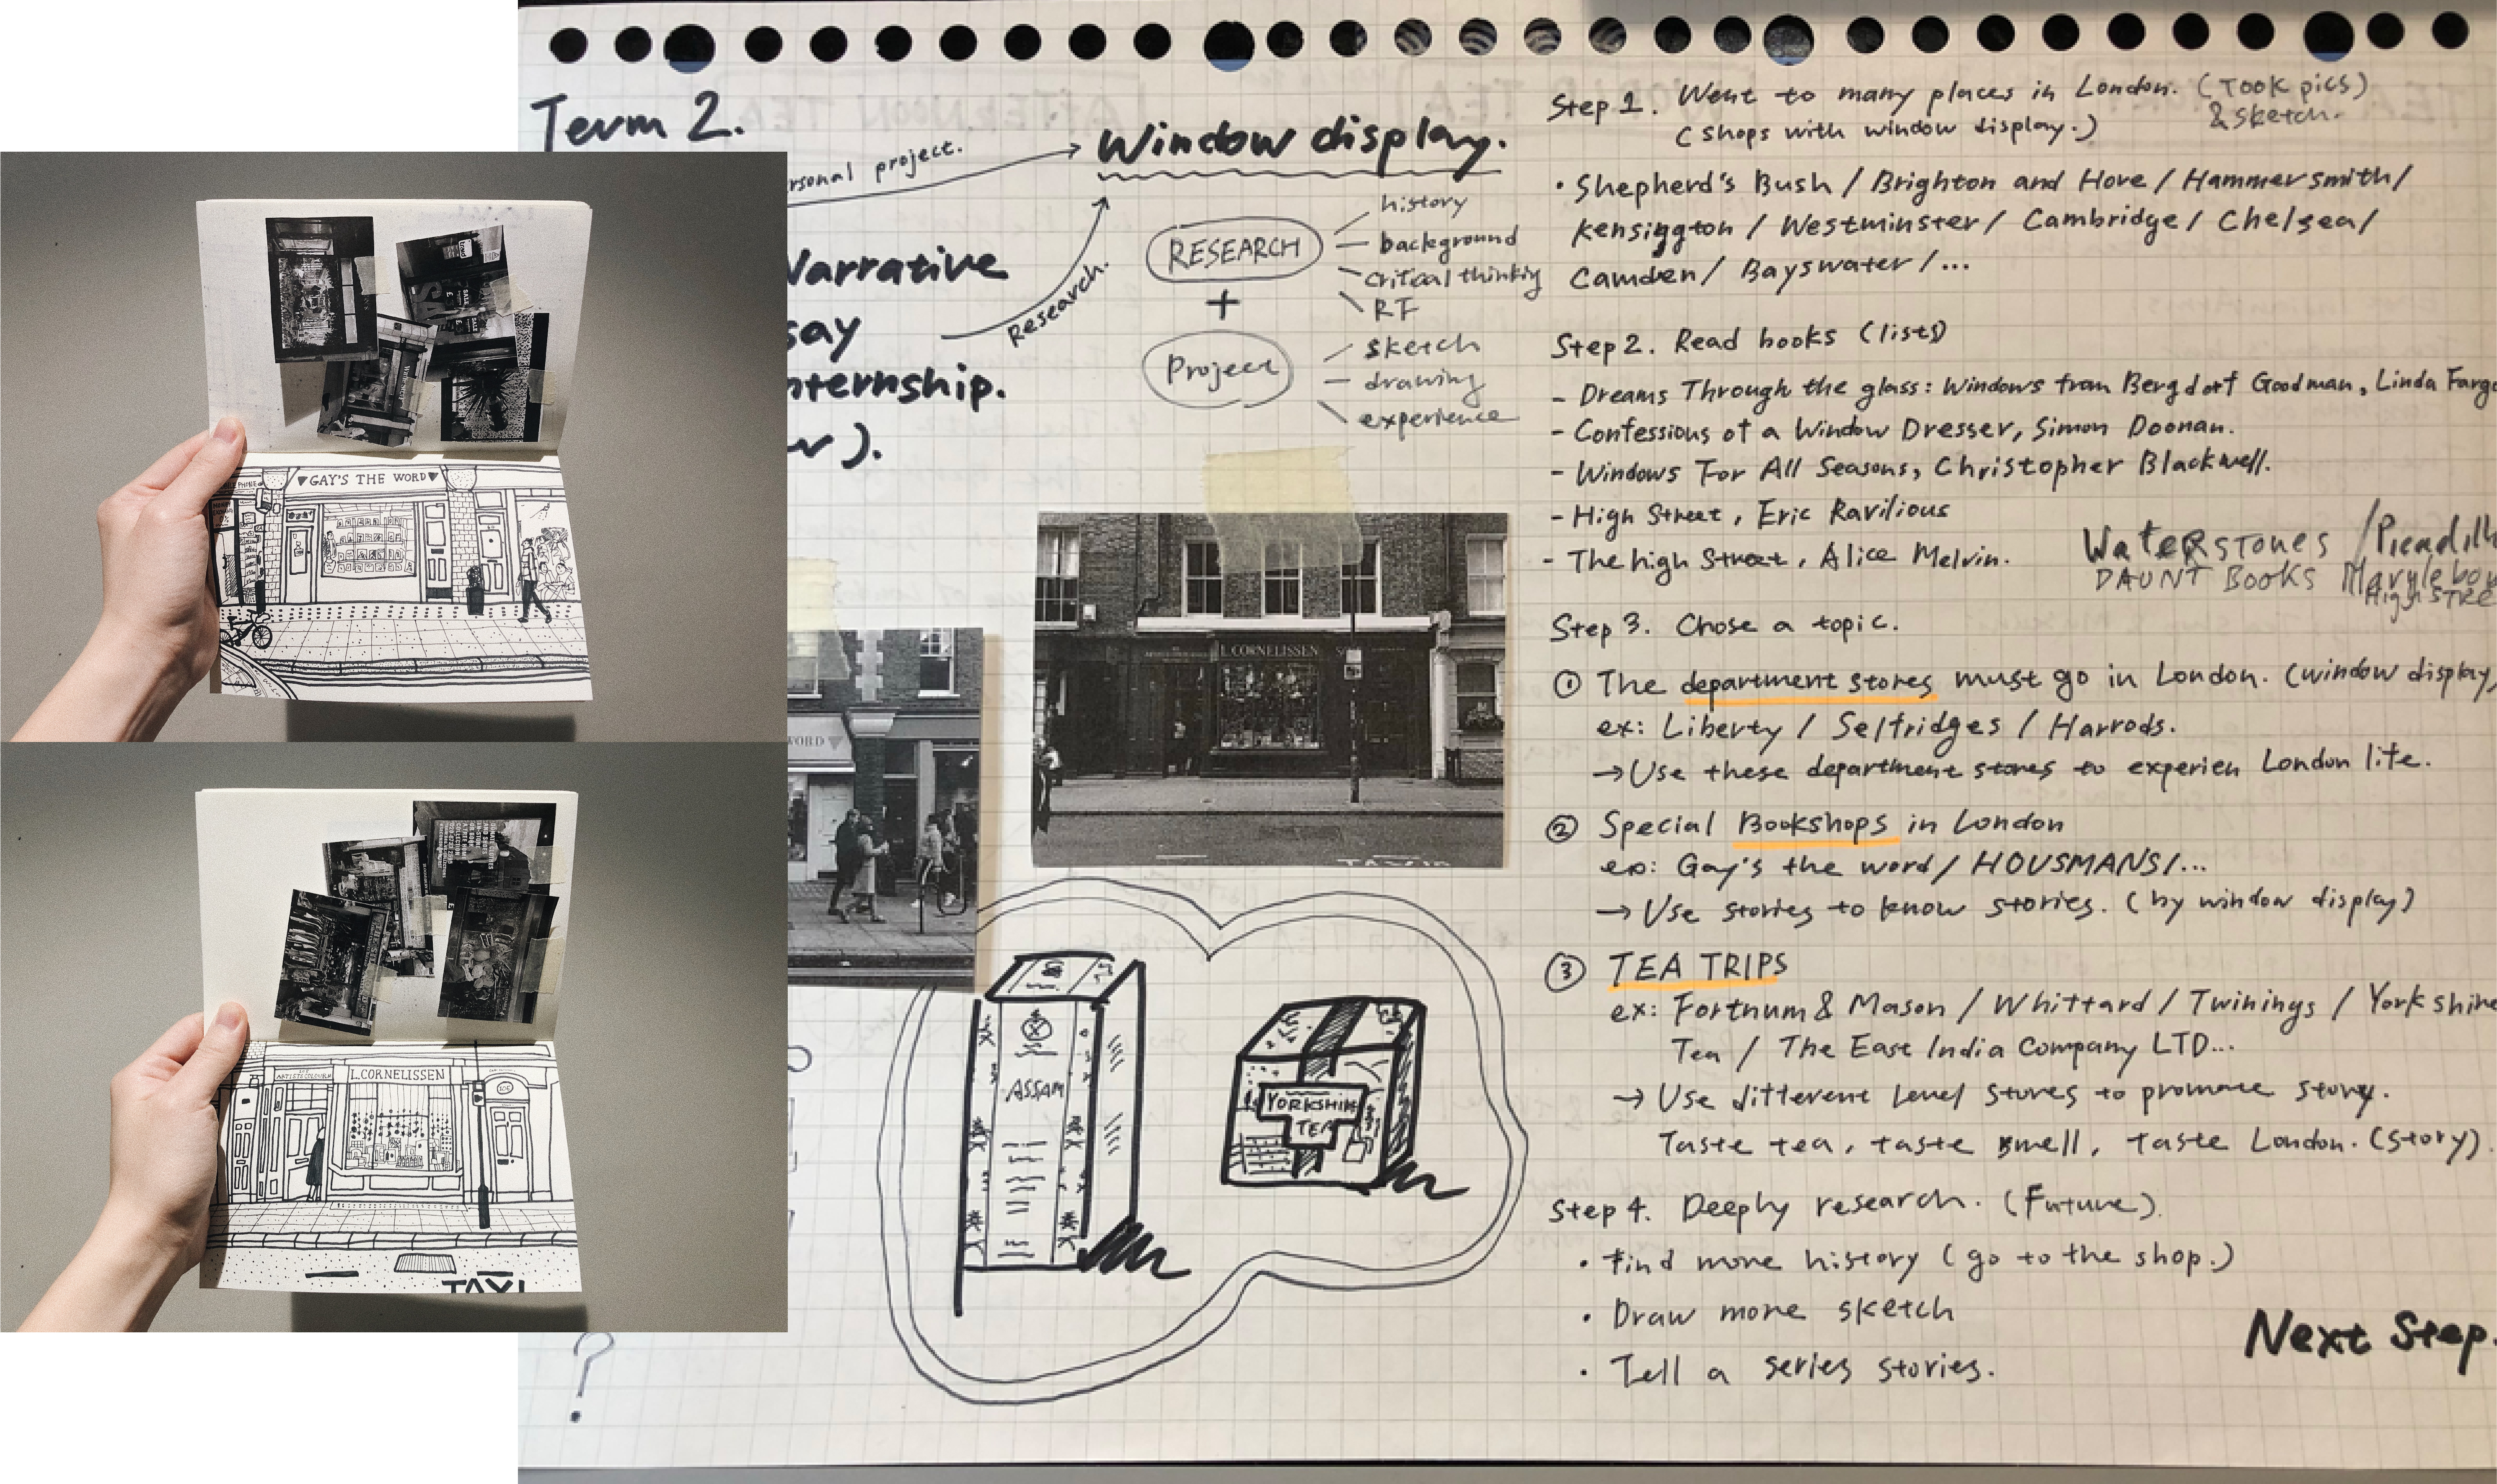 Term 2.
personal project.
Window display.
Narrative
say
nternship.
Research.
RESEARCH
history
background
critical thinking
RF
+
Project
sketch
drawing
experience
L. CORNELISSEN
WORD
ASSAM
YORKSHIR
TEA
?
Step 1. Went to many places in London. (Took pics)
& sketch.
(shops with window display.)
• Shepherd's Bush / Brighton and Hove / Hammersmith /
Kensington / Westminster / Cambridge / Chelsea /
Camden / Bayswater / ...
Step 2. Read books (lists)
- Dreams Through the glass: Windows from Bergdorf Goodman, Linda Fargo
- Confessions of a Window Dresser, Simon Doonan.
- Windows For All Seasons, Christopher Blackwell.
- High Street, Eric Ravilious
- The high Street, Alice Melvin.
WaterRSTONES / Picadilly
DAUNT BOOKS Marylebon
High STRE
Step 3. Chose a topic.
① The department stores must go in London. (window display,
ex: Liberty / Selfridges / Harrods.
→ Use these department stores to experien London life.
② Special Bookshops in London
ex: Gay's the word / HOUSMANS / ...
→ Use stories to know stories. (by window display)
③ TEA TRIPS
ex: Fortnum & Mason / Whittard / Twinings / Yorkshire
Tea / The East India Company LTD...
→ Use different level stores to promote story.
Taste tea, taste smell, taste London. (story).
Step 4. Deeply research. (Future).
• find more history (go to the shop.)
• Draw more sketch
• Tell a series stories.
Next Step.
GAY'S THE WORD
L. CORNELISSEN
105
TAXI